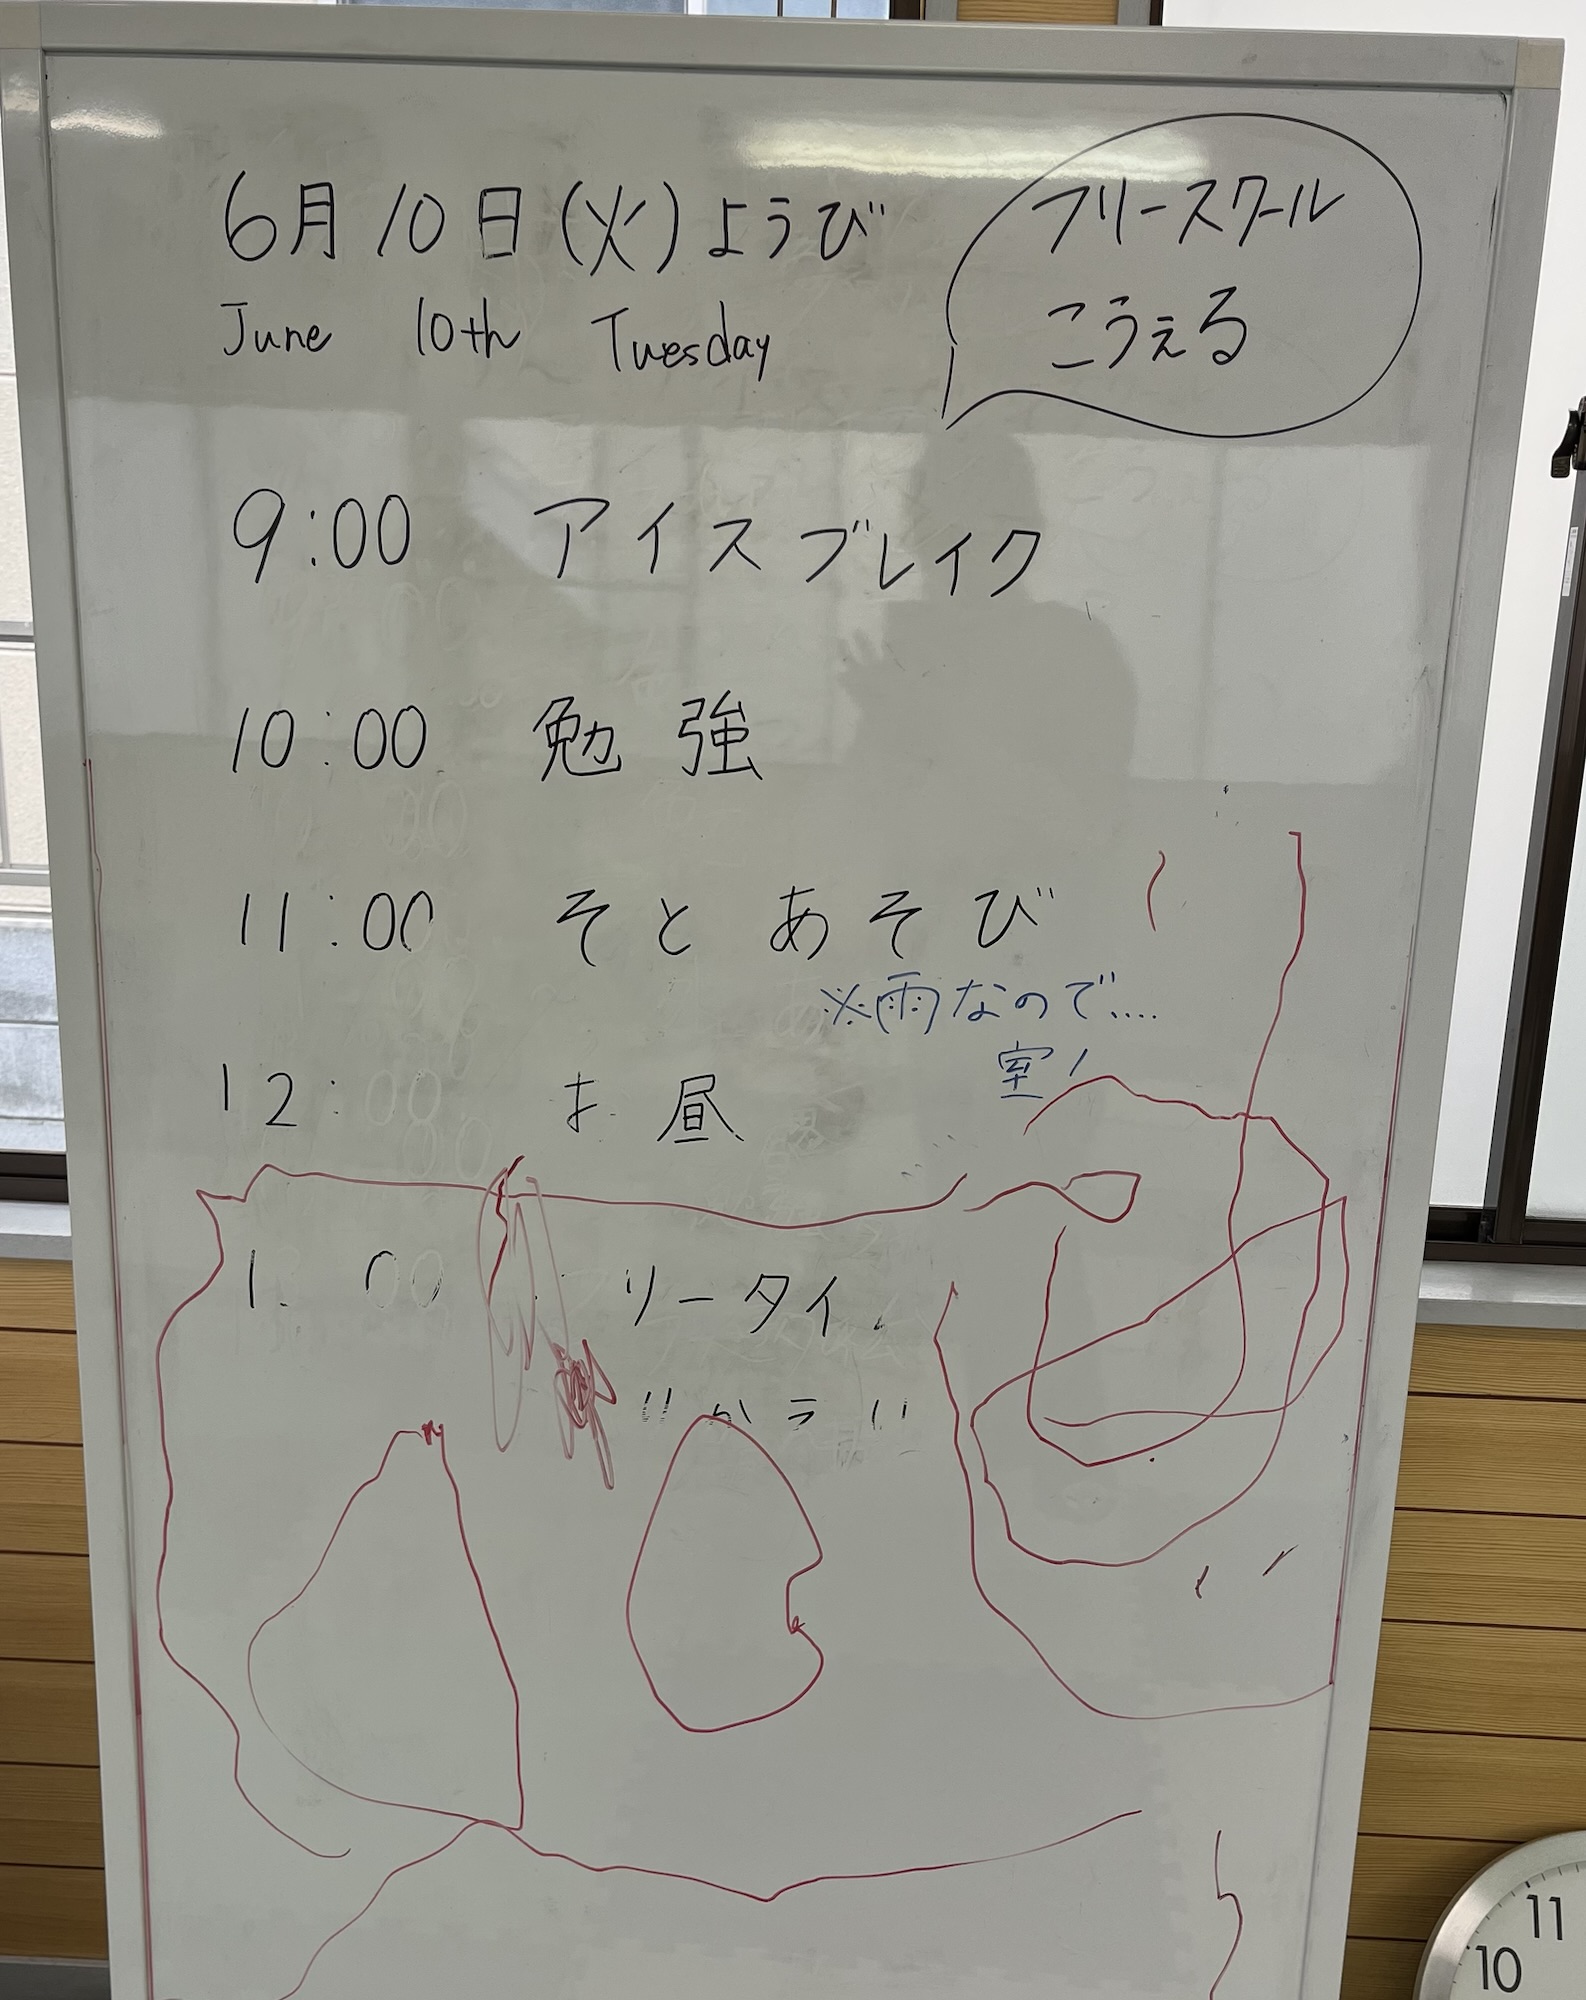 6月10日(火)ようび
June 10th Tuesday
フリースクール
こうぇる
9:00 アイスブレイク
10:00 勉強
11:00 そとあそび
※雨なので....
室
12:00 お昼
1:00 フリータイム
11
10